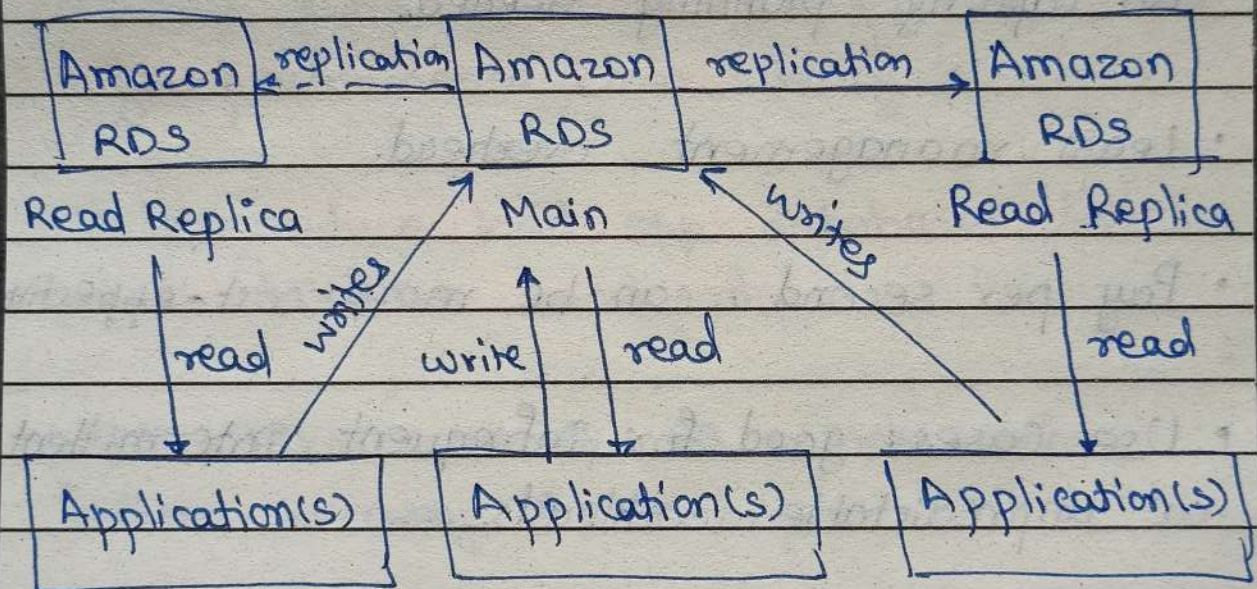 Amazon replication Amazon replication Amazon
RDS RDS RDS
Read Replica Main writes Read Replica
read writes write read read
Application(s) Application(s) Application(s)